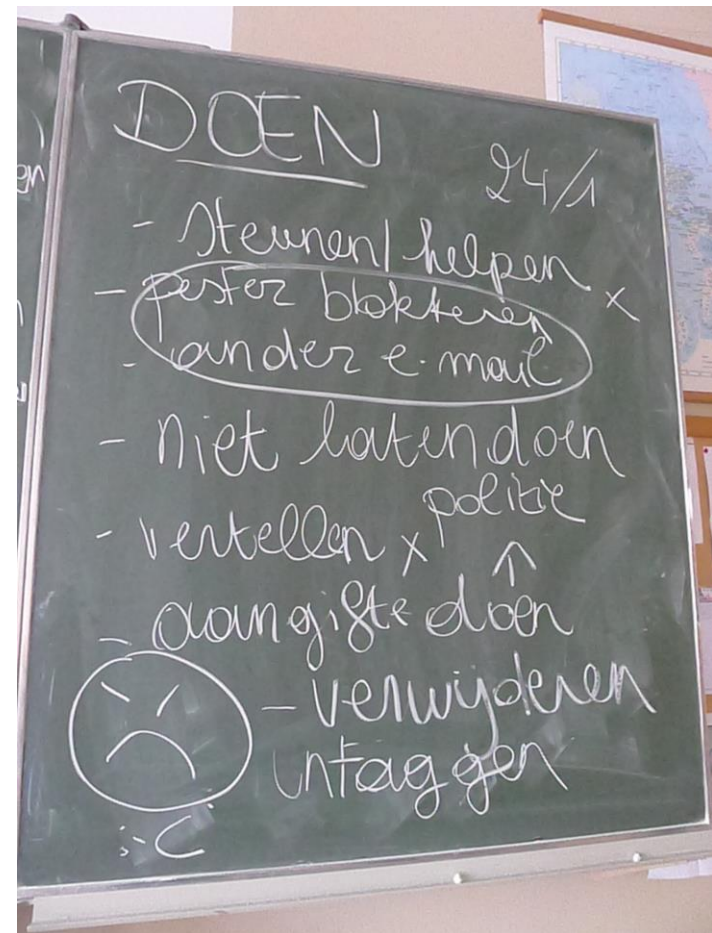 DOEN
24/1
- steunen/helpen
- pester blokkeren x
- ander e-mail
- niet laten doen
- vertellen x politie
↑
- aangifte doen
- verwijderen
untaggen
;-(